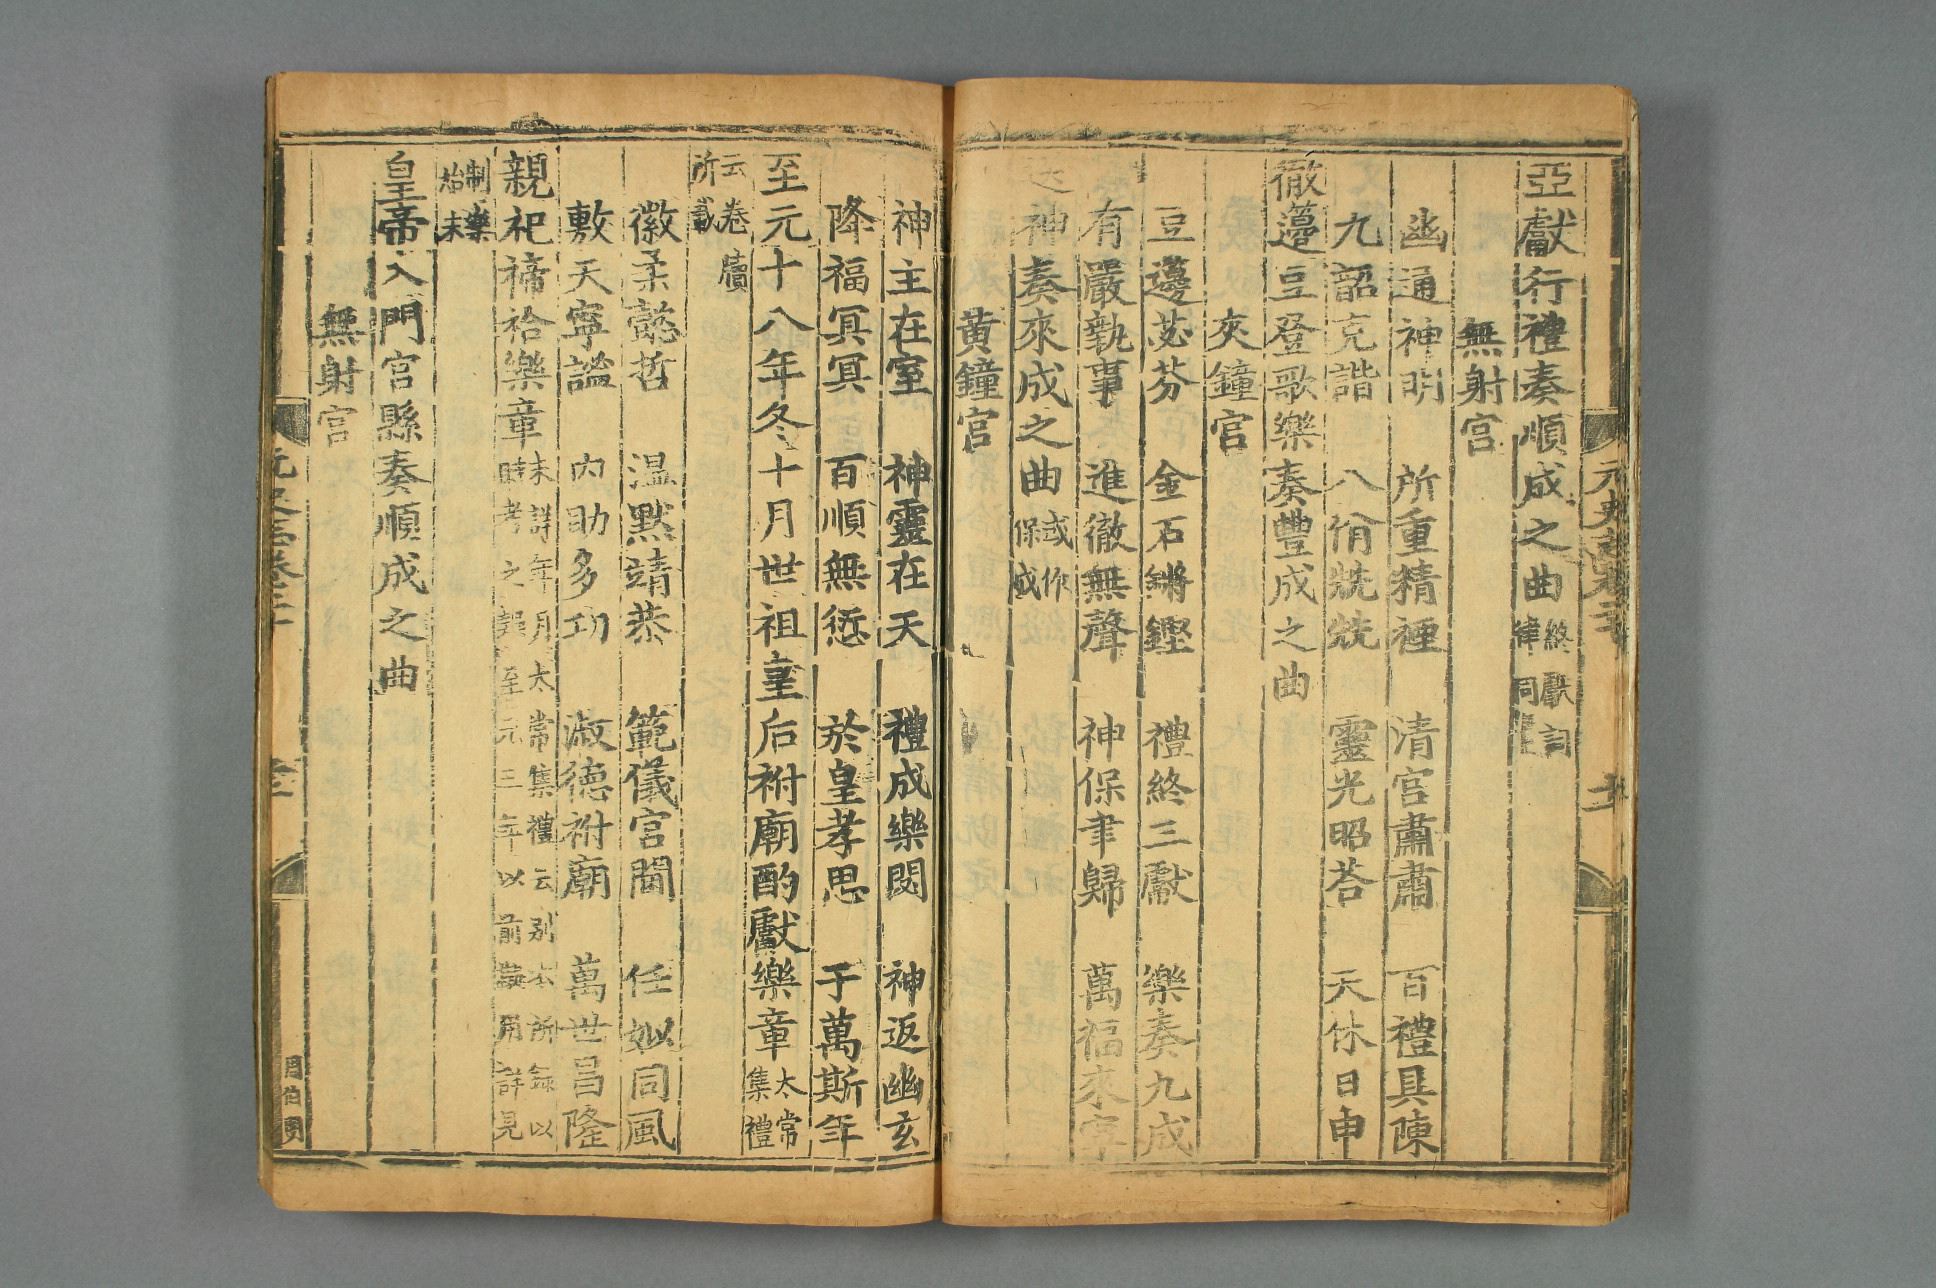 元史志卷二十
十一
亞獻行禮奏順成之曲終獻詞律同
無射宮
幽通神明 所重精禋 清宮肅肅 百禮具陳
九韶克諧 八佾兟兟 靈光昭荅 天休日申
徹籩豆登歌樂奏豐成之曲
夾鐘宮
豆籩苾芬 金石鏘鏗 禮終三獻 樂奏九成
有嚴執事 進徹無聲 神保聿歸 萬福來寧
送神奏來成之曲或作保成
黃鐘宮
神主在室 神靈在天 禮成樂闋 神返幽玄
降福冥冥 百順無愆 於皇孝思 于萬斯年
至元十八年冬十月世祖皇后祔廟酌獻樂章太常集禮
云卷牘所載
徽柔懿哲 温默靖恭 範儀宮閫 任姒同風
敷天寧謐 内助多功 淑德祔廟 萬世昌隆
親祀禘祫樂章未詳年月太常集禮云别本所録以時考之疑至元三年以前擬用詳見
制樂始末
皇帝入門宮縣奏順成之曲
無射宮
元史志卷二十